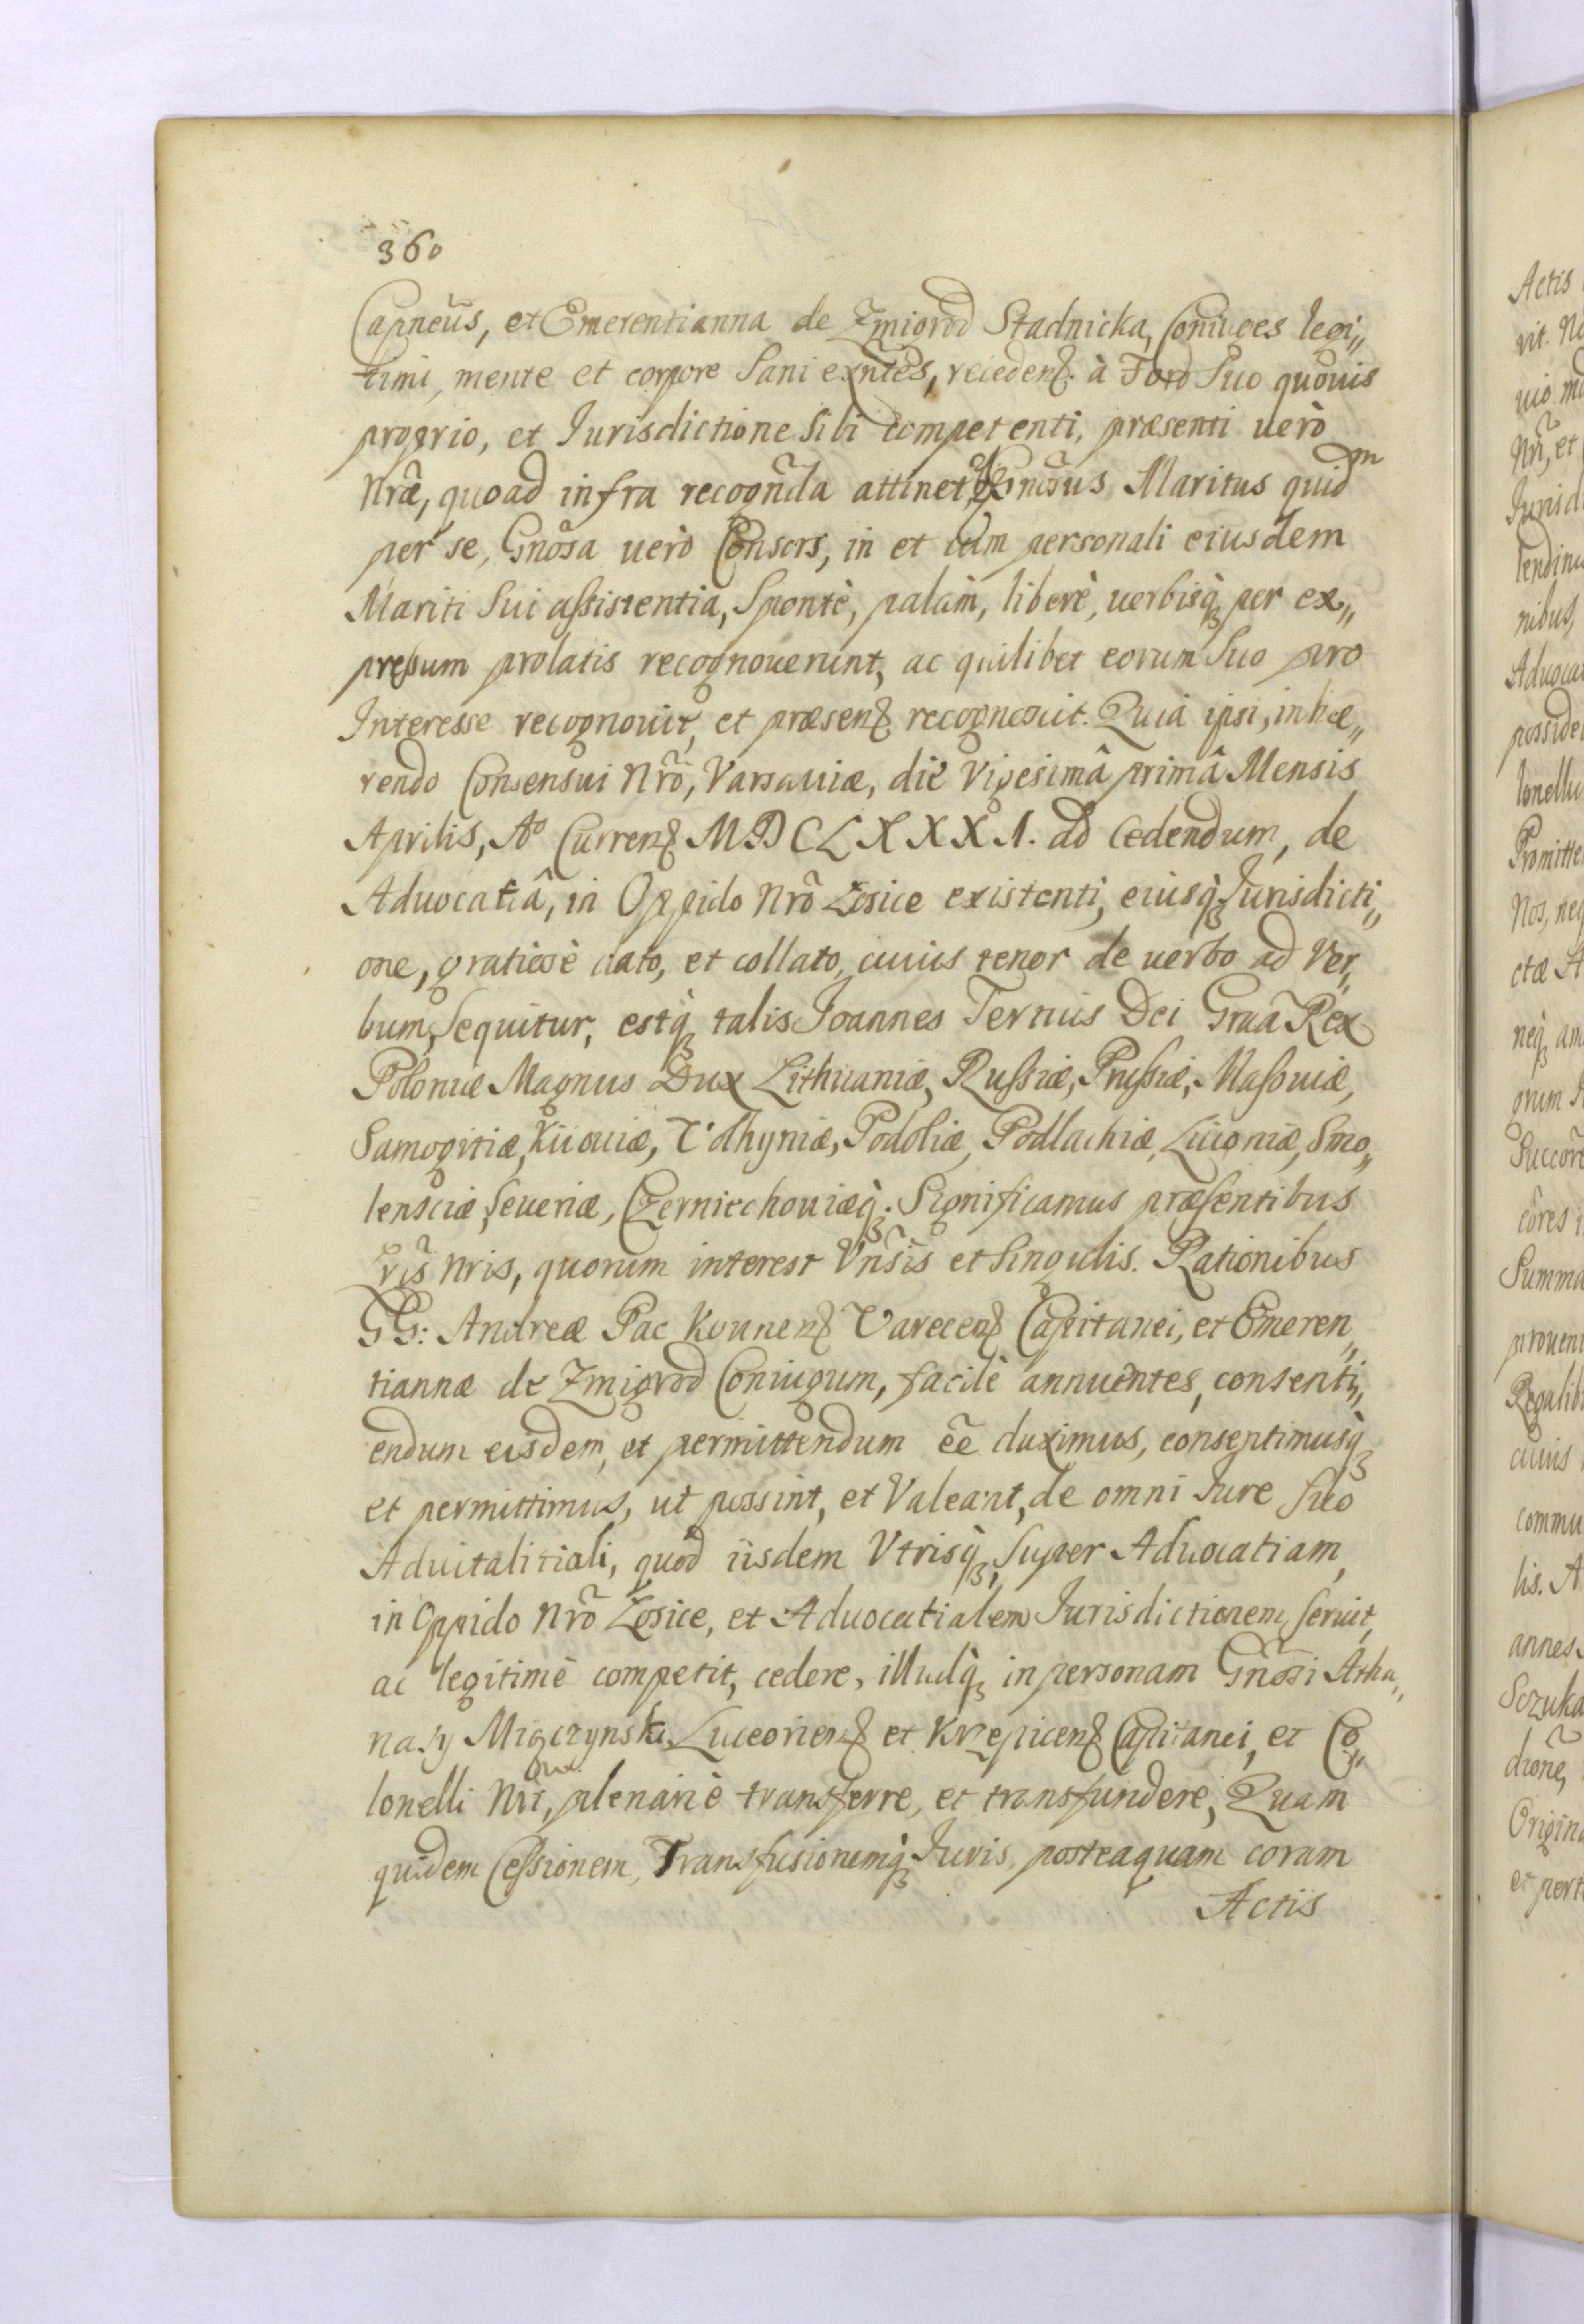 360
Capneus, et Emerentianna de Zmigrod Stadnicka, Coniuges legi„
timi, mente et corpore Sani exñtes, recedenꝫ. à Foro Suo quouis
proprio, et Iurisdictione Sibi competenti, præsenti uerò
Nrã, quoad infra recogñda attinet, Gnõsus Maritus quidm
per se, Gnõsa uerò Consors, in et cum personali eiusdem
Mariti Sui assistentia, Spontè, palàm, liberè, uerbisq̀ꝫ per ex„
pressum prolatis recognouerunt, ac quilibet eorum Suo pro
Interesse recognouit, et præsenꝫ recognouit. Quia ipsi, inhæ„
rendo Consensui Nrõ, Varsauiæ, die Vigesimâ primâ Mensis
Aprilis, Aº Currenꝫ MDCLXXXI. ad Cedendum, de
Aduocatiâ, in Oppido Nrõ Łosice existenti, eiusq̀ꝫ Iurisdicti„
one, gratiosè dato, et collato, cuius tenor de uerbo ad Ver„
bum, Sequitur, estq̀ꝫ talis Ioannes Tertius Dei Grãa Rex
Poloniæ Magnus Dux Lithuaniæ, Russiæ, Prussiæ, Massouiæ,
Samogitiæ, Kiiouiæ, Volhyniæ, Podoliæ, Podlachiæ, Liuoniæ, Smo„
lensciæ, Seueriæ, Czerniechouiæq̀ꝫ. Significamus præsentibus
Lrĩs Nris, quorum interest Vñsis et Singulis. Rationibus
GG: Andreæ Pac Kounenꝫ Varecenꝫ Capitanei, et Emeren„
tiannæ de Zmigrod Coniugum, facilè annuentes, consenti„
endum eisdem, et permittendum eẽ duximus, consentimusq̀ꝫ
et permittimus, ut possint, et Valeant, de omni Iure Suo
Aduitalitiali, quod iisdem Vtrisq̀ꝫ, Super Aduocatiam,
in Oppido Nrõ Łosice, et Aduocatialem Iurisdictionem, seruit,
ac legitimè competit, cedere, illudq̀ꝫ in personam Gñosi Atha„
nasy Miączynski Luceorienꝫ et Krzepicenꝫ Capitanei, et Co„
lonelli Nri, plenariè transferre, et transfundere, Quam
quidem Cessionem, Transfusionemq̀ꝫ Iuris, posteaquam coram
Actis